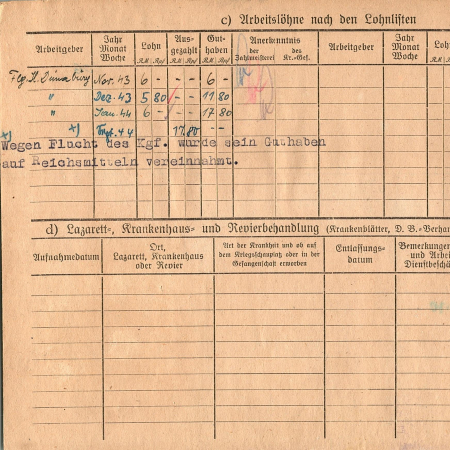 c) Arbeitslöhne nach den Lohnlisten
Arbeitgeber Jahr Monat Woche Lohn Aus- gezahlt Gut- haben Anerkenntnis Arbeitgeber Jahr Monat Woche Loh
R.M. Rpf R.M. Rpf R.M. Rpf der Zahlmeisterei des Kr.-Gef. R.M.
Flg. H. Dünaburg Nov. 43 6 - - - 6 -
" Dez. 43 5 80 - - 11 80
" Jan. 44 6 - - - 17 80
x) x) 44 17 80 - -
Wegen Flucht des Kgf. wurde sein Guthaben
auf Reichsmitteln vereinnahmt.
d) Lazarett-, Krankenhaus- und Revierbehandlung (Krankenblätter, D. B.-Verhan
Aufnahmedatum Ort, Lazarett, Krankenhaus oder Revier Art der Krankheit und ob auf dem Kriegsschauplatz oder in der Gefangenschaft erworben Entlassungs- datum Bemerkungen und Arbei Dienstbeschä